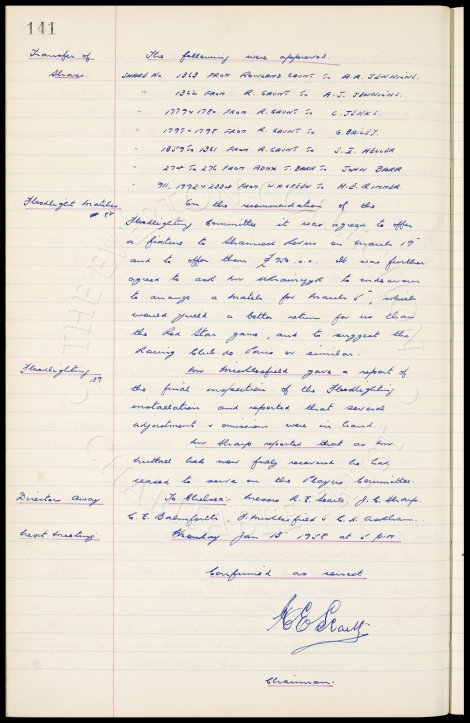 141
Transfer of Shares.
The following were approved.
SHARE No 1363 FROM ROWLAND GAUNT To A.R. JENNIONS.
" 1362 FROM R. GAUNT To A.J. JENNIONS.
" 1779 & 1780 FROM R. GAUNT To C. JENKS.
" 1797 & 1798 FROM R. GAUNT To G. BAILEY.
" 1359 To 1361 FROM R. GAUNT To S.I. HELLER
" 274 To 276 FROM ADMX T. BARR To JOHN BARR
" 911, 1992 & 2034 FROM W.H. GREEN To H.E. RIMMER.
Floodlight Matches
# 58
On the recommendation of the
Floodlighting Committee it was agreed to offer
a fixture to Shamrock Rovers on March 19th
and to offer them £750.0.0. It was further
agreed to ask Mr to endeavour
to arrange a match for March 5th, which
would yield a better return for us than
the Red Star game, and to suggest the
Racing Club de Paris or similar.
Floodlighting
59
Mr Micklesfield gave a report of
the final inspection of the Floodlighting
installation and reported that several
adjustment & omissions were in hand.
Mr Sharp reported that as Mr
had now fully recovered he had
ceased to serve on the Players Committee.
Directors Away
To Chelsea: Messrs R.E. Searle, J.C. Sharp.
C.E. Balmforth, F. Micklesfield & C.H. Askham.
Next Meeting
Monday Jan 13th 1958 at 5 P.M
Confirmed as correct
Chairman.